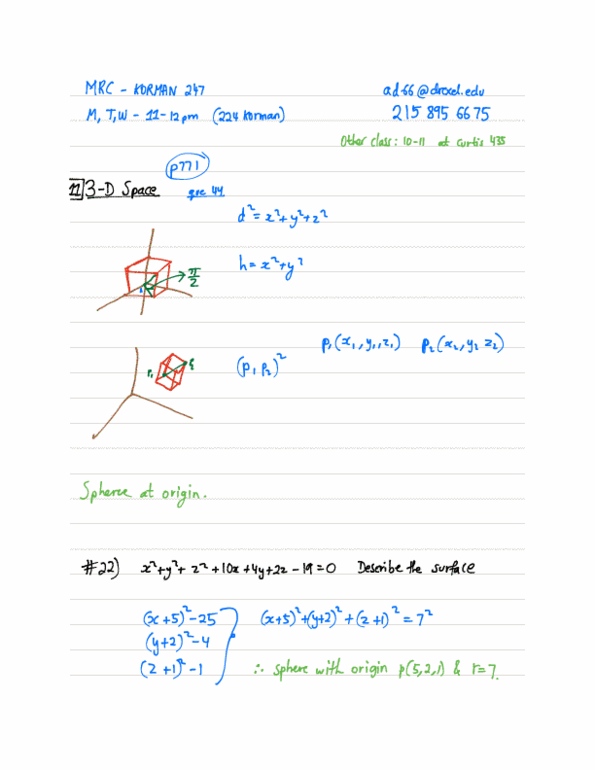 MRC - KORMAN 247
ad66@drexel.edu
M, T, W - 11-12pm (224 Korman)
215 895 6675
Other class: 10-11 at Curtis 435
p771
11 3-D Space
que 44
d² = x² + y² + z²
h = x² + y²
π/2
P₁(x₁, y₁, z₁) P₂(x₂, y₂ z₂)
P₁ P₂
(P₁ P₂)²
Spheree at origin.
#22) x² + y² + z² + 10x + 4y + 2z - 19 = 0 Describe the surface
(x+5)² - 25 (x+5)² + (y+2)² + (z+1)² = 7²
(y+2)² - 4
(z+1)² - 1 ∴ sphere with origin p(5,2,1) & r=7.